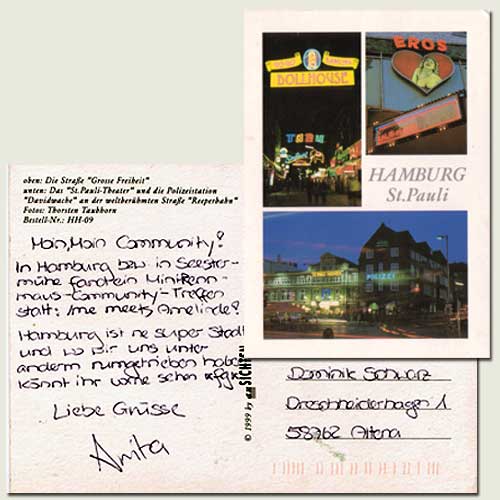 DOLLHOUSE
TABU
EROS
HAMBURG
St.Pauli
POLIZEI
oben: Die Straße "Grosse Freiheit"
unten: Das "St.Pauli-Theater" und die Polizeistation
"Davidwache" an der weltberühmten Straße "Reeperbahn"
Fotos: Thorsten Taubhorn
Bestell-Nr.: HH-09
Moin, Moin Community!
In Hamburg bzw. in Seester-
mühe fand ein MiniRenn-
maus-Community-Treffen
statt: Ame meets Amelinde!
Hamburg ist ne super Stadt
und wo wir uns unter
anderm rumgetrieben habe
könnt ihr vorne sehen
Liebe Grüsse
Anita
Dominik Schwarz
Dreschheiderhagen 1
58762 Altena
© 1999 by